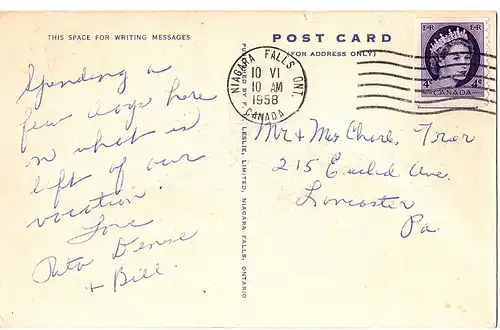 THIS SPACE FOR WRITING MESSAGES
Spending a
few days here
in what is
left of our
vacation.
Love
Pat Denise
+ Bill.
PUBLISHED BY F. H. LESLIE, LIMITED, NIAGARA FALLS, ONTARIO
POST CARD
(FOR ADDRESS ONLY)
NIAGARA FALLS ONT
10 VI
10 AM
1958
CANADA
E II R E II R
4¢ 4¢
CANADA
Mr & Mrs Charl. Trier
215 Euclid Ave.
Loncaster
Pa.